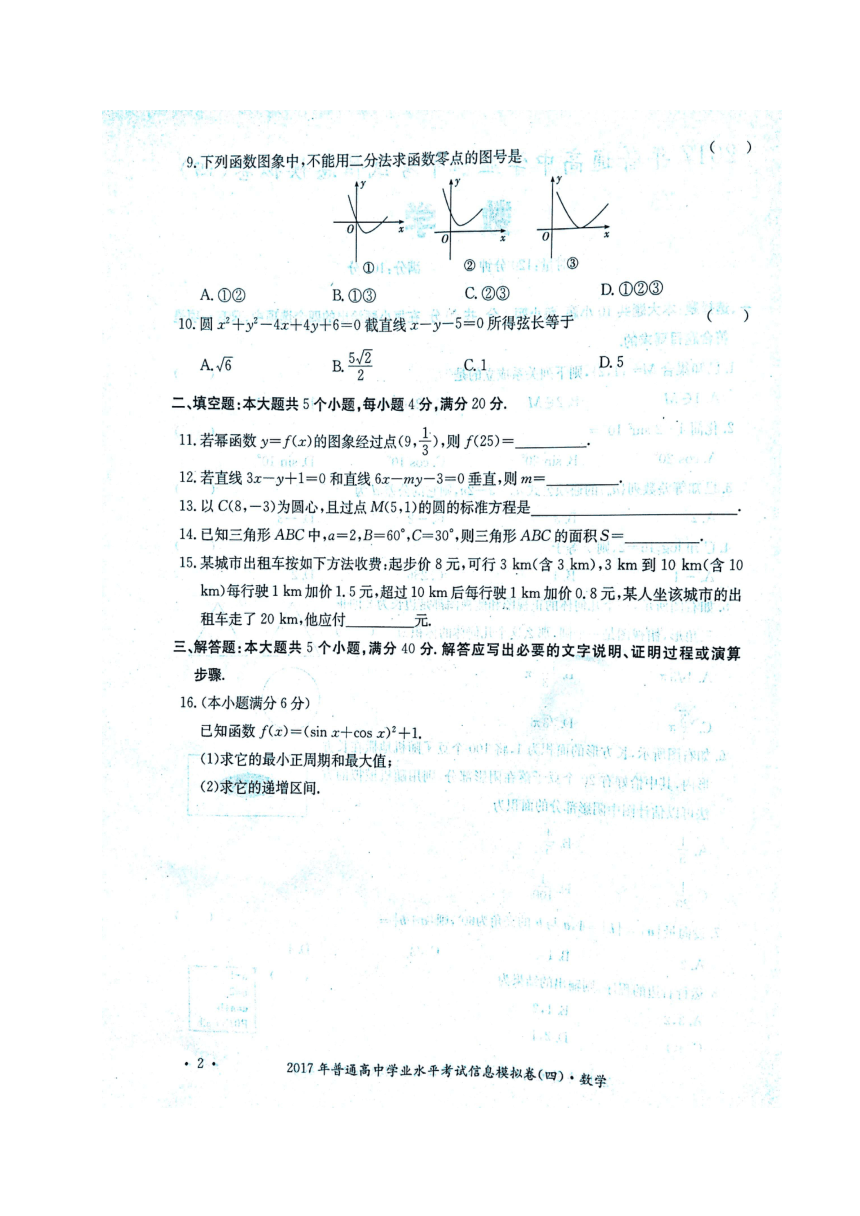 9.下列函数图象中,不能用二分法求函数零点的图号是 ( )
y y y
O x O x O x
① ② ③
A.①② B.①③ C.②③ D.①②③
10.圆 x²+y²-4x+4y+6=0 截直线 x-y-5=0 所得弦长等于 ( )
A.√6 B.5√2/2 C.1 D.5
二、填空题:本大题共5个小题,每小题4分,满分20分.
11.若幂函数 y=f(x)的图象经过点(9,1/3),则 f(25)=________.
12.若直线 3x-y+1=0 和直线 6x-my-3=0 垂直,则 m=________.
13.以 C(8,-3)为圆心,且过点 M(5,1)的圆的标准方程是________.
14.已知三角形 ABC 中,a=2,B=60°,C=30°,则三角形 ABC 的面积 S=________.
15.某城市出租车按如下方法收费:起步价8元,可行3 km(含3 km),3 km 到 10 km(含 10
km)每行驶1 km加价1.5元,超过10 km后每行驶1 km加价0.8元,某人坐该城市的出
租车走了20 km,他应付________元.
三、解答题:本大题共5个小题,满分40分.解答应写出必要的文字说明、证明过程或演算
步骤.
16.(本小题满分6分)
已知函数 f(x)=(sin x+cos x)²+1.
(1)求它的最小正周期和最大值;
(2)求它的递增区间.
·2· 2017年普通高中学业水平考试信息模拟卷(四)·数学